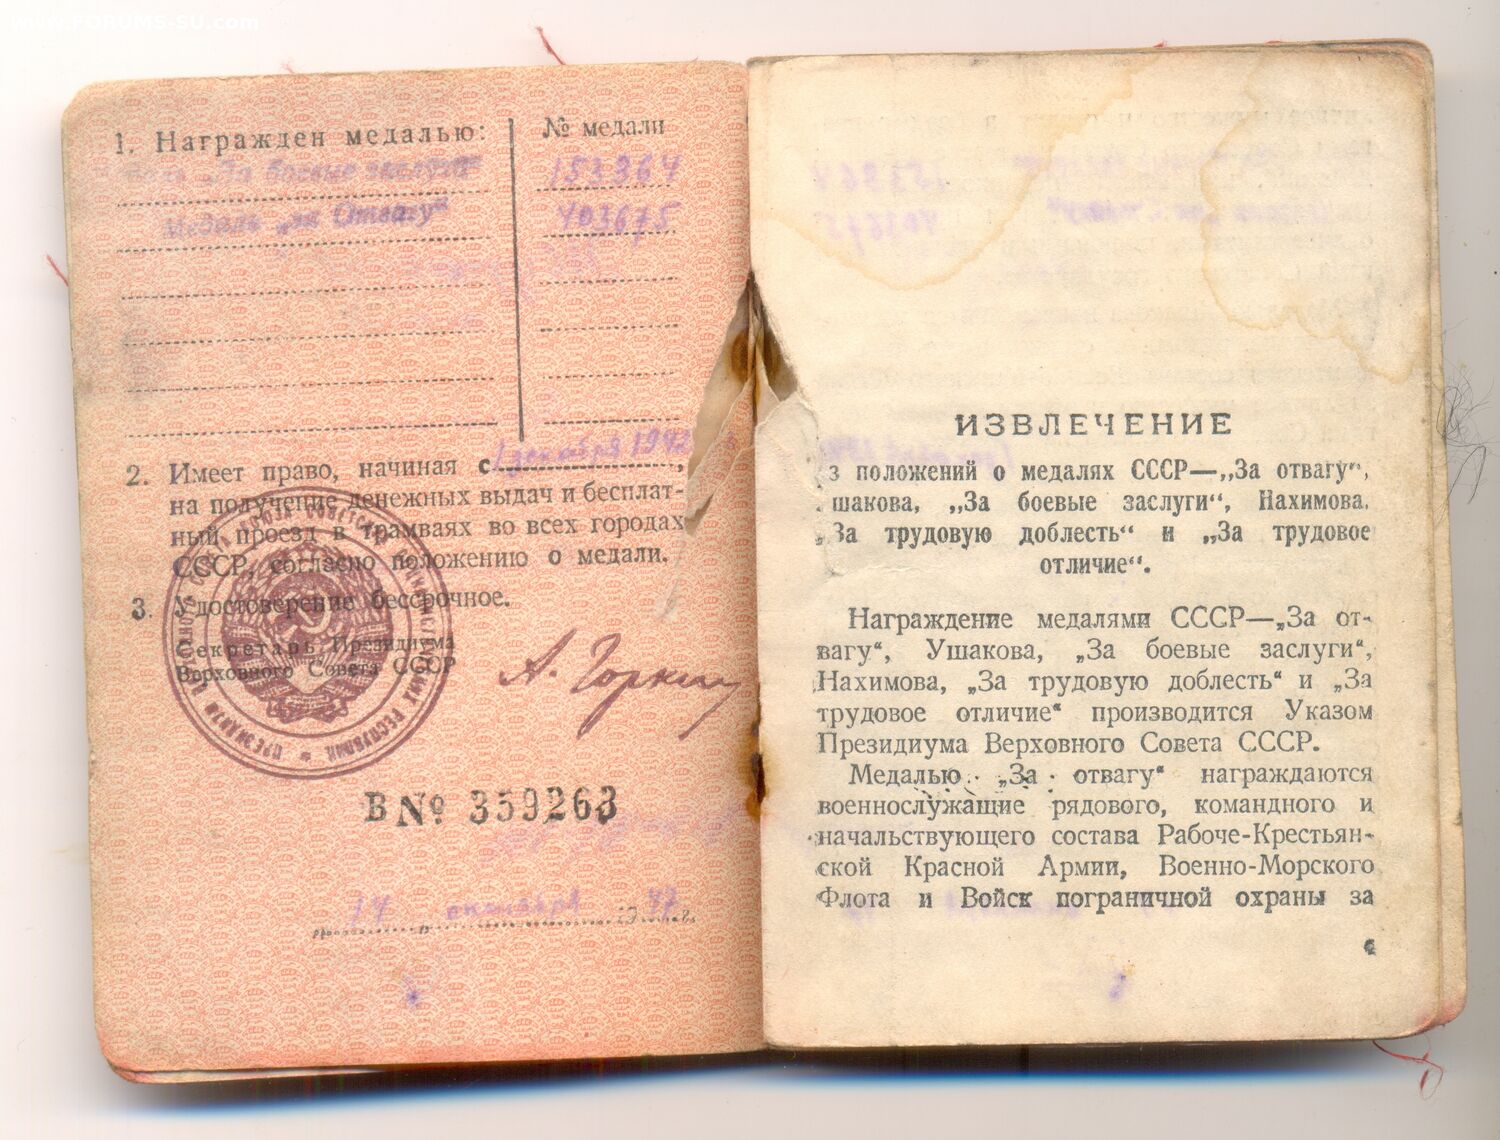 www.FORUMS-SU.com
1. Награжден медалью:
№ медали
„За боевые заслуги“
153364
Медаль „за Отвагу“
403675
2. Имеет право, начиная с 1 декабря 194
на получение денежных выдач и бесплат-
ный проезд в трамваях во всех городах
СССР, согласно положению о медали.
3. Удостоверение бессрочное.
Секретарь Президиума
Верховного Совета СССР
А. Горкин
В № 359263
14 октября 47
ИЗВЛЕЧЕНИЕ
з положений о медалях СССР—„За отвагу“,
шакова, „За боевые заслуги“, Нахимова,
„За трудовую доблесть“ и „За трудовое
отличие“.
Награждение медалями СССР—„За от-
вагу“, Ушакова, „За боевые заслуги“,
Нахимова, „За трудовую доблесть“ и „За
трудовое отличие“ производится Указом
Президиума Верховного Совета СССР.
Медалью „За отвагу“ награждаются
военнослужащие рядового, командного и
начальствующего состава Рабоче-Крестьян-
ской Красной Армии, Военно-Морского
Флота и Войск пограничной охраны за